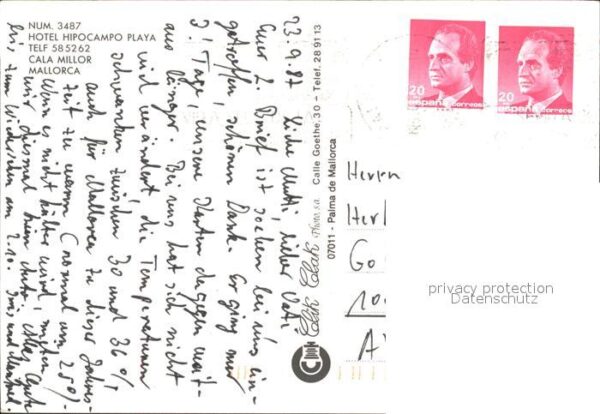 NUM. 3487
HOTEL HIPOCAMPO PLAYA
TELF 585262
CALA MILLOR
MALLORCA
23.9.87
Liebe Mutti, lieber Vati
Euer 2. Brief ist soeben bei uns ein-
getroffen, schönen Dank. Er ging nur
3! Tage, unsere Karten dagegen weit-
aus länger. Bei uns hat sich nicht
viel verändert, die Temperaturen
schwanken zwischen 30 und 36°!
auch für Mallorca zu dieser Jahres-
zeit zu warm (normal um 25°)
Wenn es nicht kälter wird, mieten
wir diesmal kein Auto. Alles Gute
bis zum Wiedersehen am 2.10. und
Click Clack Photo, s.a. Calle Goethe, 30 - Telef. 28 91 13
07011 - Palma de Mallorca
20
españa correos
20
españa correos
Herrn
Her
Go
100
A
privacy protection
Datenschutz